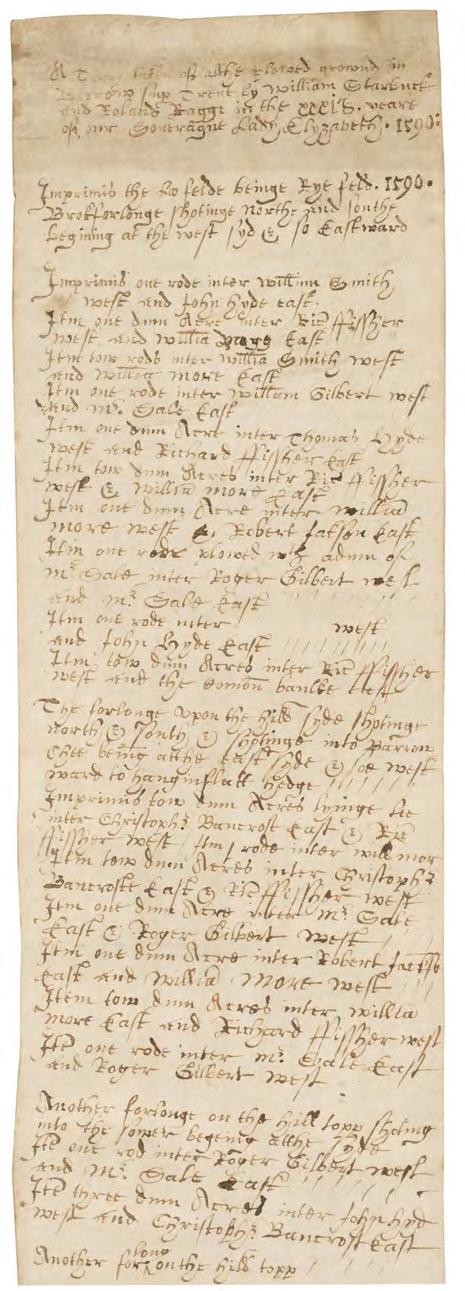 A
taken of all the plowed ground in
Barrow sup Trent by William Starbuck
and Roland Bagge in the xxxith. yeare
of our Soveragne Lady Elyzabeth. 1590:
Imprimis the Lo felde beinge Rye feld. 1590.
Brokforlonge shotinge Northe and southe
begining at the west syd & so Eastward
Imprimis one rode inter Willim Smith
west and John Hyde east.
Itm one dim Acre inter Ric ffissher
west and Willia more East
Itm tow rods inter Willia Smith west
and Willia more East
Itm one rode inter William Gilbert west
and Mr. Sale East
Itm one dim Acre inter Thomas Hyde
west and Richard ffissher East
Itm tow dim Acres inter Ric ffissher
west & Willia more East
Itm one dim Acre inter Willia
more west & Robert Jakson East
Itm one rode plowed wth of
Mr Sale inter Roger Gilbert west
and Mr. Sale East
Itm one rode inter west
and John Hyde East
Itm tow dim Acres inter Ric ffissher
west and the comon banke East
The forlonge upon the hill syde shotinge
north & south & shotinge into parson
being atthe East syde & soe west
ward to hanginflatt hedge
Imprimis tow dim Acres lyinge
inter Christophr Bancroft East & Ric
ffissher west / Itm 1 rode inter will mor
Itm tow dim Acres inter Christophr
Bancrofte East & Ric ffissher west
Itm one dim Acre inter Mr. Sale
East & Roger Gilbert west
Itm one dim Acre inter Robert Jackso
East and Willia More west
Item tow dim Acres inter Willia
more East and Richard ffissher west
Ite one rode inter Mr. Sale East
and Roger Gilbert west
Another forlonge on the hill topp shoting
into the begenig atthe syde
Ite one rod inter Roger Gilbert west
and Mr. Sale East
Ite three dim Acres inter John hyd
west and Christophr Bancroft East
Another forlong on the hill topp